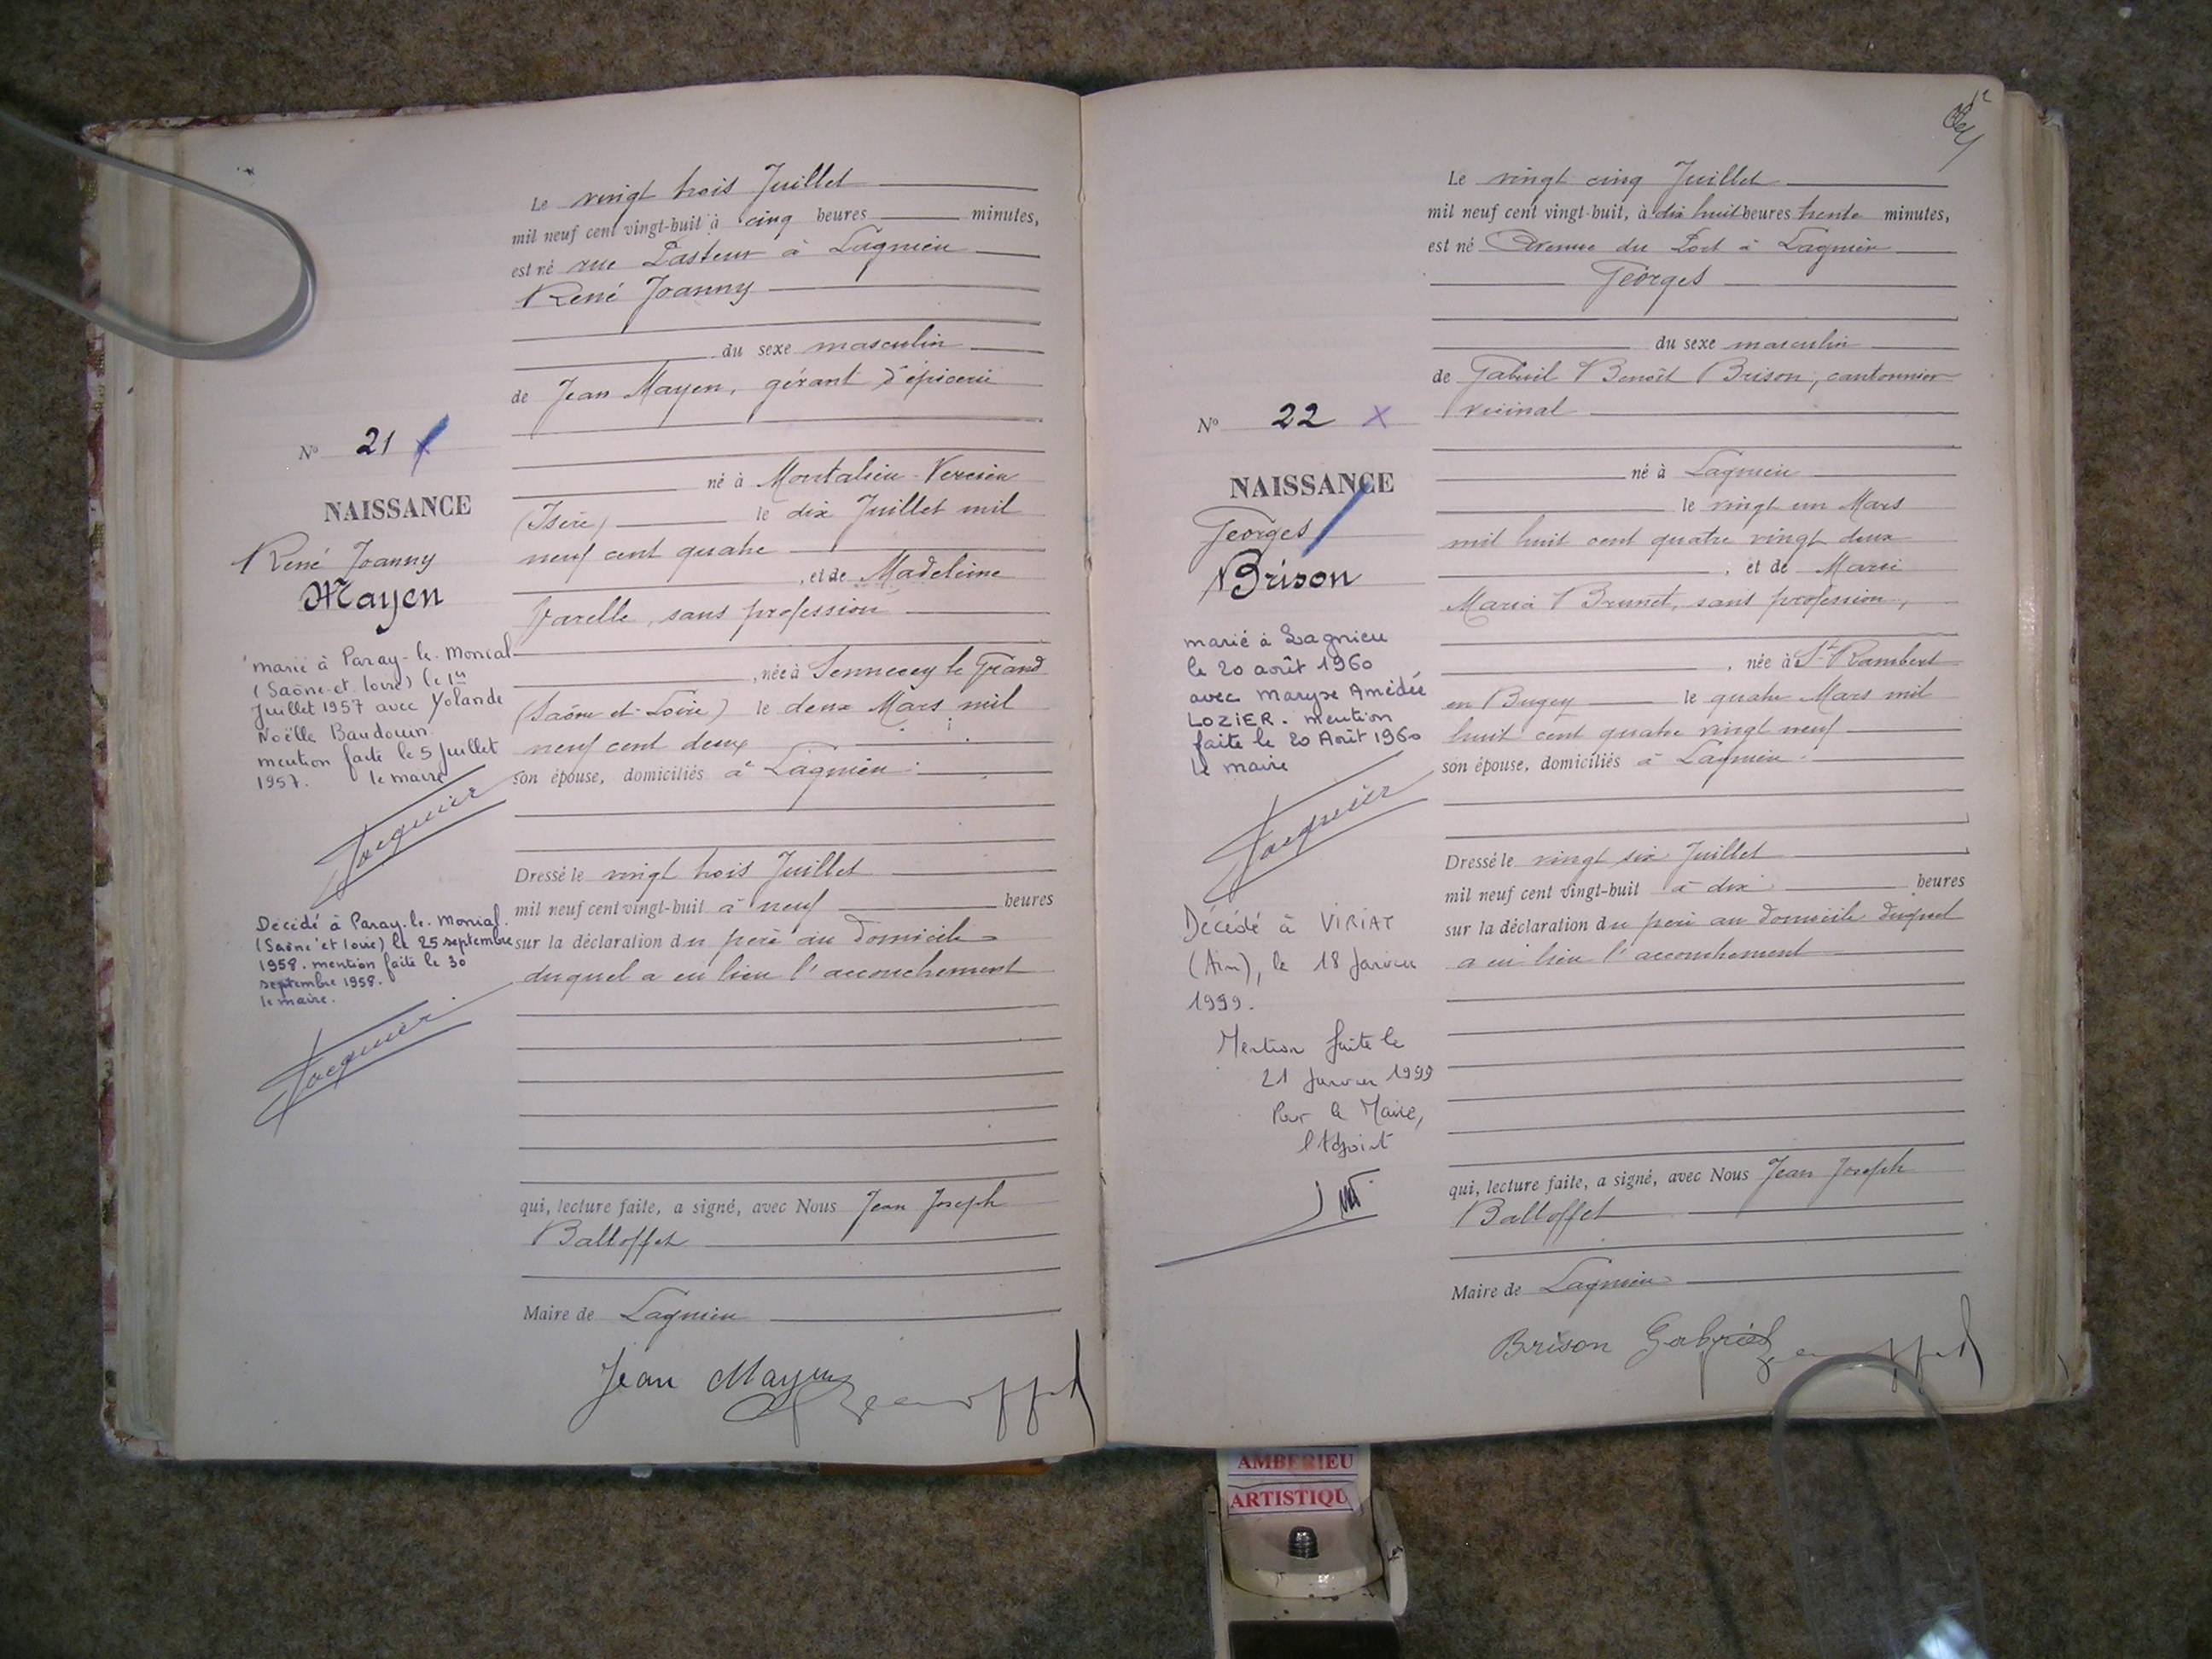 Le vingt trois Juillet
mil neuf cent vingt-huit à cinq heures minutes,
est né rue Pasteur à Lagnieu
René Joanny
du sexe masculin
de Jean Mayen, gérant d'épicerie
N° 21
né à Montalieu-Vercieu
NAISSANCE
(Isère) le dix Juillet mil
neuf cent quatre
René Joanny
Mayen
, et de Madeleine
Varelle, sans profession
, née à Sennecey le Grand
(Saône-et-Loire) le deux Mars mil
neuf cent deux
son épouse, domiciliés à Lagnieu.
marié à Paray-le-Monial
(Saône-et-Loire) le 1er
Juillet 1957 avec Yolande
Noëlle Baudouin
mention faite le 5 Juillet
1957. le maire
Jacquier
Dressé le vingt trois Juillet
mil neuf cent vingt-huit à neuf heures
sur la déclaration du père au domicile
duquel a eu lieu l'accouchement
Décédé à Paray-le-Monial
(Saône et Loire) le 25 septembre
1958. mention faite le 30
septembre 1958.
le maire.
Jacquier
qui, lecture faite, a signé, avec Nous Jean Joseph
Balloffet
Maire de Lagnieu
Jean Mayen
Le vingt cinq Juillet
mil neuf cent vingt-huit, à dix huit heures trente minutes,
est né Avenue du Port à Lagnieu
Georges
du sexe masculin
de Gabriel Benoît Brison, cantonnier
vicinal
N° 22
né à Lagnieu
NAISSANCE
le vingt un Mars
mil huit cent quatre vingt deux
Georges
Brison
, et de Marie
Maria Brunet, sans profession,
, née à St Rambert
en Bugey le quatre Mars mil
huit cent quatre vingt neuf
son épouse, domiciliés à Lagnieu.
marié à Lagnieu
le 20 août 1960
avec Maryse Amédée
LOZIER. mention
faite le 20 Août 1960
le maire
Jacquier
Dressé le vingt six Juillet
mil neuf cent vingt-huit à dix heures
sur la déclaration du père au domicile duquel
a eu lieu l'accouchement
Décédé à VIRIAT
(Ain), le 18 Janvier
1999.
Mention faite le
21 Janvier 1999
Pour le Maire,
l'Adjoint
qui, lecture faite, a signé, avec Nous Jean Joseph
Balloffet
Maire de Lagnieu
Brison Gabriel
AMBERIEU
ARTISTIQU